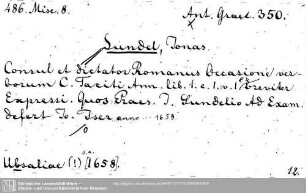 486. Misc. 8.
Ant. Graec. 350.
Lundel, Jonas.
Consul et dictator Romanus Occasione ver
borum C. Taciti Ann. lib. 1. c. 1. v. 1. breviter
Expressi. Quos Praes. J. Lundelio Ad Exam.
defert Jo. Iser anno 1658.
s.a.
Upsaliae (!) [1658].
12.